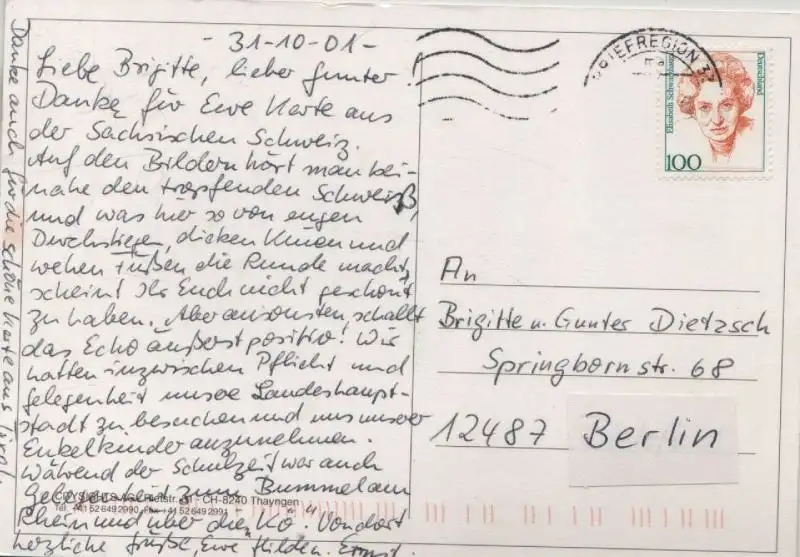 - 31-10-01 -
Liebe Brigitte, lieber Gunter!
Danke für Eure Karte aus
der Sächsischen Schweiz.
Auf den Bildern hört man bei-
nahe den tropfenden Schweiß,
und was hier so von engen
Durchstiegen, dicken Knien und
wehen Füßen die Runde macht,
scheint Ihr Euch nicht geschont
zu haben. Aber ansonsten schallt
das Echo äußerst positiv! Wir
hatten inzwischen Pflicht und
Gelegenheit unsere Landeshaupt-
stadt zu besuchen und uns unserer
Enkelkinder anzunehmen.
Während der Schulzeit war auch
Gelegenheit zum Bummel am
Rhein und über die "Kö". Von dort
herzliche Grüße, Eure Hilden. Ernst.
Danke auch für die schöne Karte aus Tirol.
CH-8240 Thayngen
Tel. +41 52 649 29 90, Fax +41 52 649 29 91
BRIEFREGION 37
Deutschland
Elisabeth Schwarzhaupt
100
An
Brigitte u. Gunter Dietzsch
Springbornstr. 68
12487 Berlin